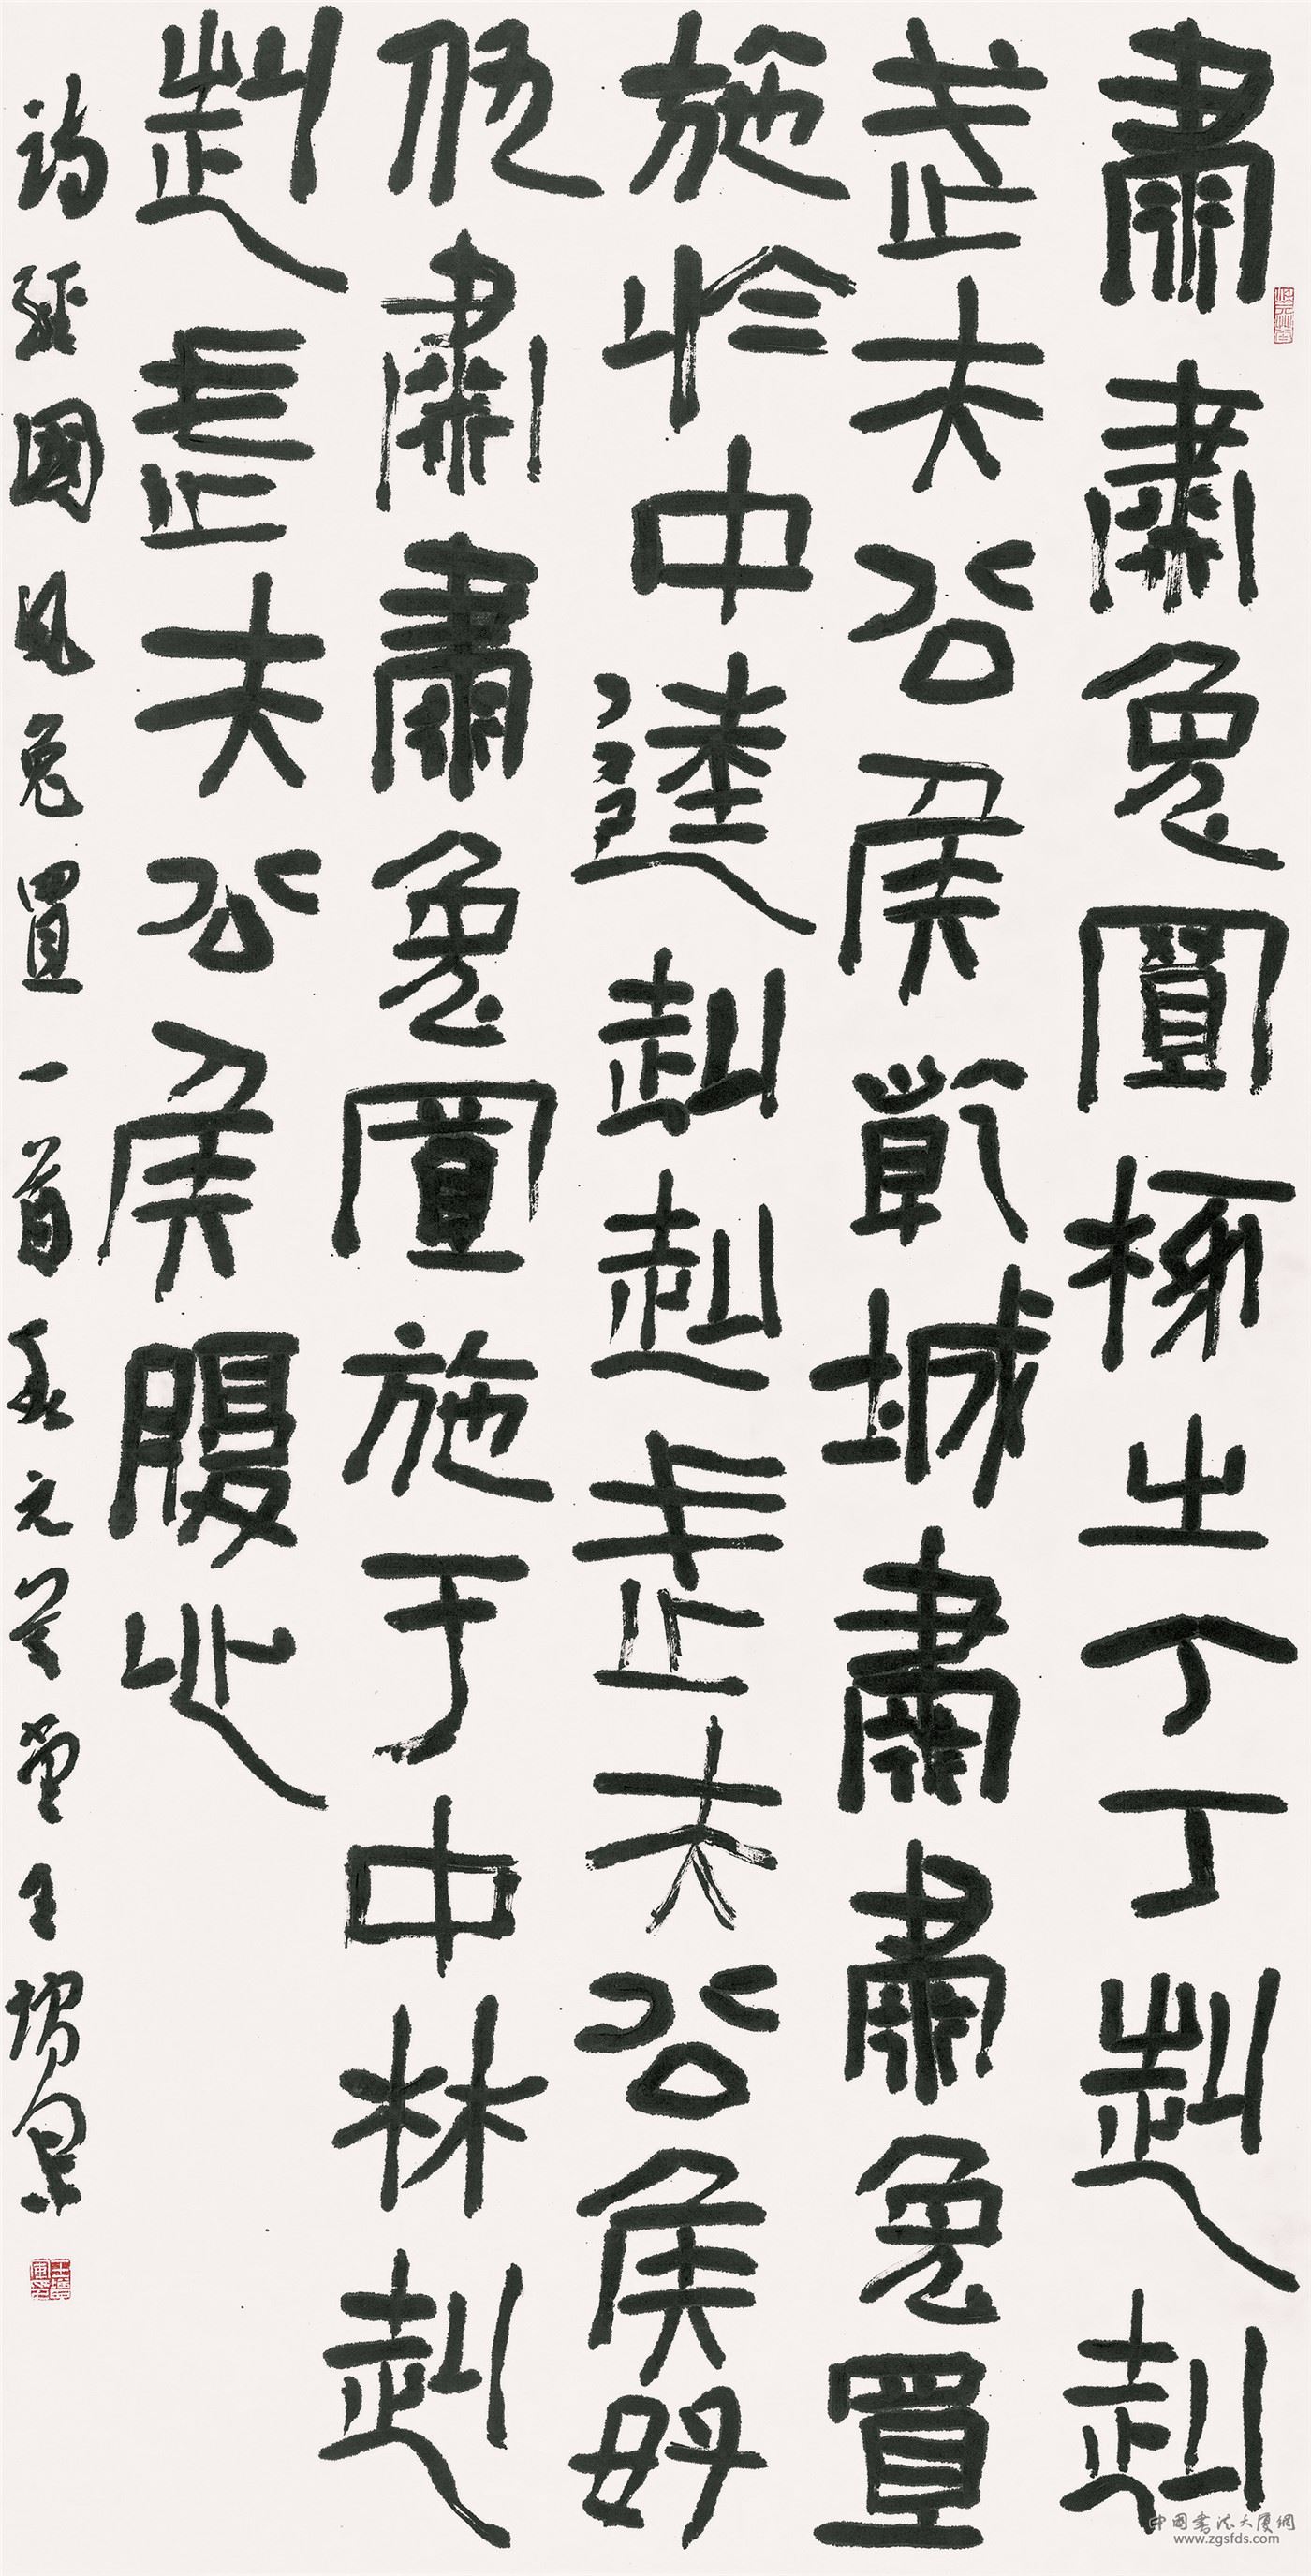 肅肅兔罝椓之丁丁赳赳
武夫公侯城肅肅兔罝
施於中逵赳赳武夫公侯好
仇肅肅兔罝施于中林赳
赳武夫公侯腹心
詩經國風兔罝一首 元堂王增軍
中國書法大厦網
www.zgsfds.com